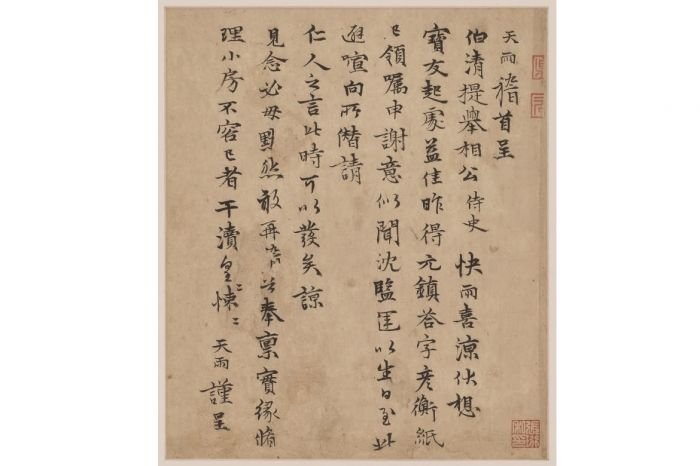 天雨稽首呈
伯清提舉相公侍史 快雨喜涼伏想
寶友起處益佳昨得元鎮荅字彦衡紙
已領嘱申謝意似聞沈監以生日至此
避喧向所僭請
仁人之言此時可以發矣諒
見念必毋默然敢再奉稟實緣脩
理小房不容已者干瀆皇〻悚〻 天雨謹呈